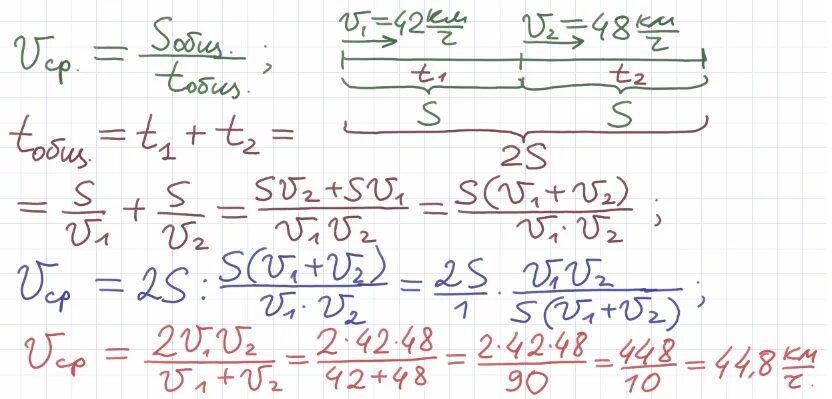 v₁=42 км/ч v₂=48 км/ч
vср. = Sобщ./tобщ. ;
t₁ t₂
S S
2S
tобщ. = t₁ + t₂ =
= S/v₁ + S/v₂ = (Sv₂+Sv₁)/(v₁v₂) = S(v₁+v₂)/(v₁·v₂) ;
vср = 2S : S(v₁+v₂)/(v₁·v₂) = 2S/1 · v₁v₂/(S(v₁+v₂)) ;
vср = 2v₁v₂/(v₁+v₂) = 2·42·48/(42+48) = 2·42·48/90 = 448/10 = 44,8 км/ч.